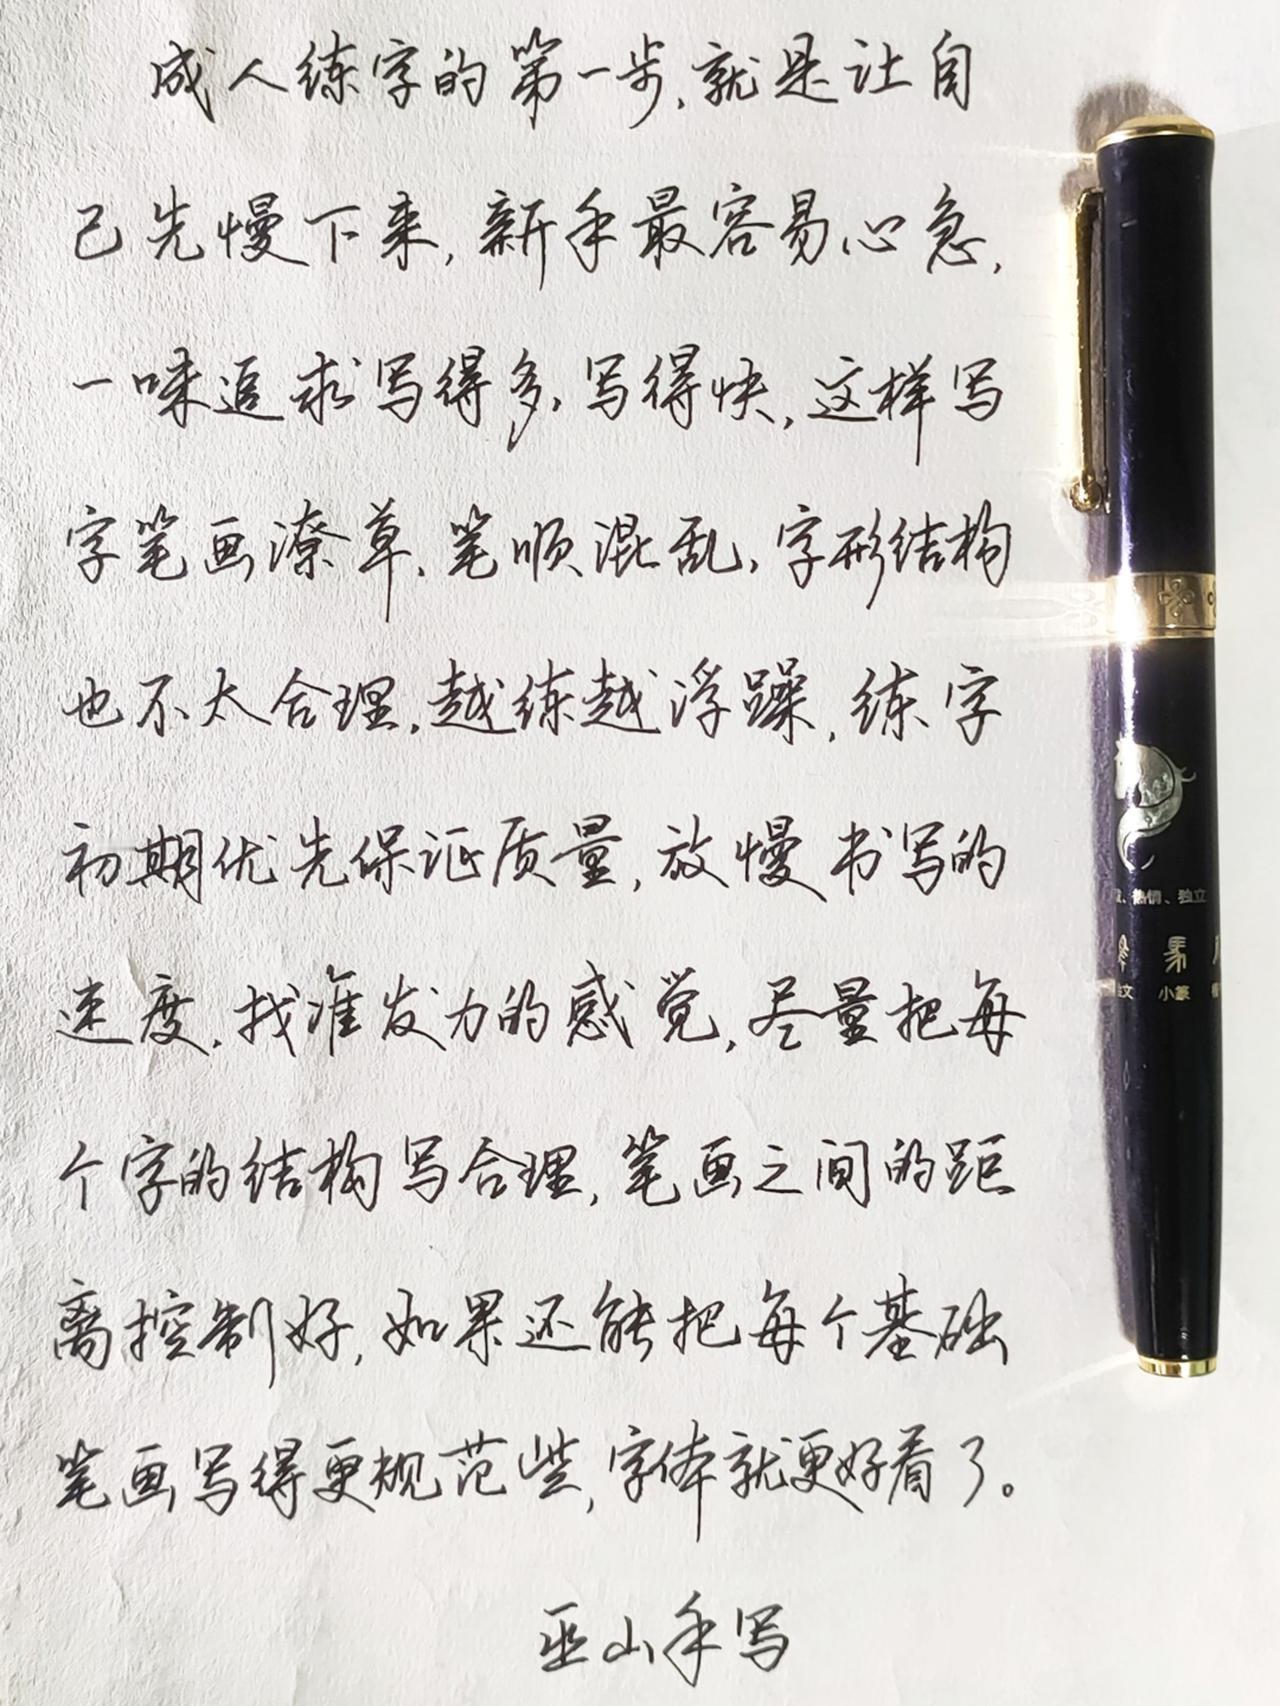 成人练字的第一步,就是让自
己先慢下来,新手最容易心急,
一味追求写得多,写得快,这样写
字笔画潦草,笔顺混乱,字形结构
也不太合理,越练越浮躁,练字
初期优先保证质量,放慢书写的
速度,找准发力的感觉,尽量把每
个字的结构写合理,笔画之间的距
离控制好,如果还能把每个基础
笔画写得更规范些,字体就更好看了。
巫山手写
、热情、独立
小篆